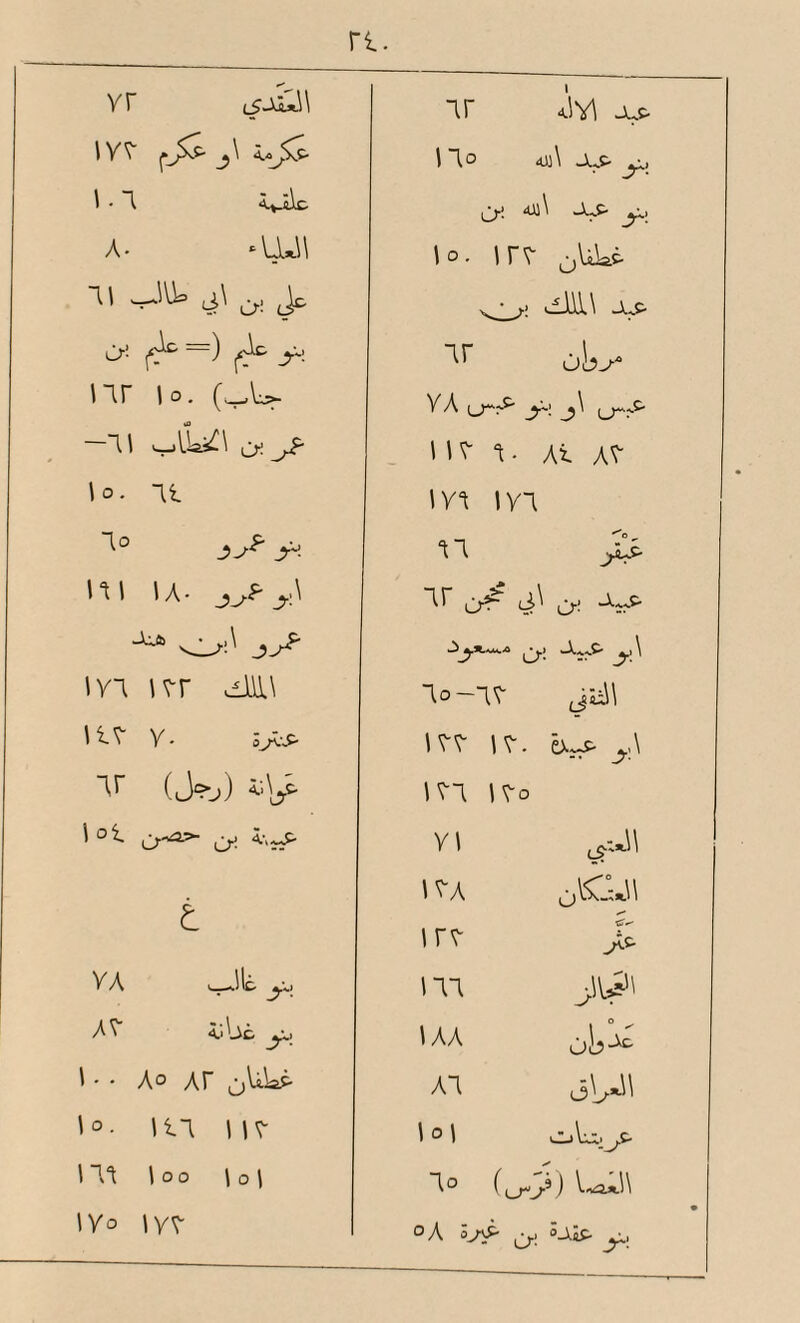 ٢٤٠
عبد الاله ٦٢
بنو عبد الله ١٦٥
بنو عبد الله بن
غطفان ١٢٣ ١٥٠
عبد الملك بن
مروان ٦٢
عبس او بنو عبس ٧٨
٨٣ ٨٤ ٩٠ ١١٣
١٧٦ ١٧٩
عَبْقَر ٩٦
عبيد بن ابي محجن ٦٢
ابو عبيد بن مسعود
الثقفي ٦٣—٦٥
ابو عبيدة ١٣٠ ١٣٣
١٣٥ ١٣٦
العتبي ٧١
العتْكان ١٣٨
عَثَّر ١٢٣
العجالز ١٦٦
عَدْوان ١٨٨
العراق ٨٦
عريتنات ١٥١
العصا (فَرَس) ٦٥
بنو عقدة بن غيرة ٥٨
العَقَدي ٧٢
عكرمة او عكرم ١٧٣
علقمة ١٠٦
العلياء ٨٠
علي بن ابي طالب ٦١
بنو عليم (= عليم بن
جناب) ١٥٠ ١٦٢
عمر بن الخطّاب ٦١—
٦٤ ١٥٠
بنو عمرو ٦٥
ابو عمرو ١٨٠ ١٩١
عمرو ابن هند
الملك ١٣٢ ١٧٦
عنترة ٧٠ ١٤٣
عوانة (رجل) ٦٢
عيينة بن حصن ١٥٤
غ
بنو غالب ٧٨
بنو غدانة ٨٣
غطفان ٨٢ ٨٥ ١٠٠
١١٣ ١٤٦ ١٥٠
١٥١ ١٥٥ ١٦٩
١٧٣ ١٧٥